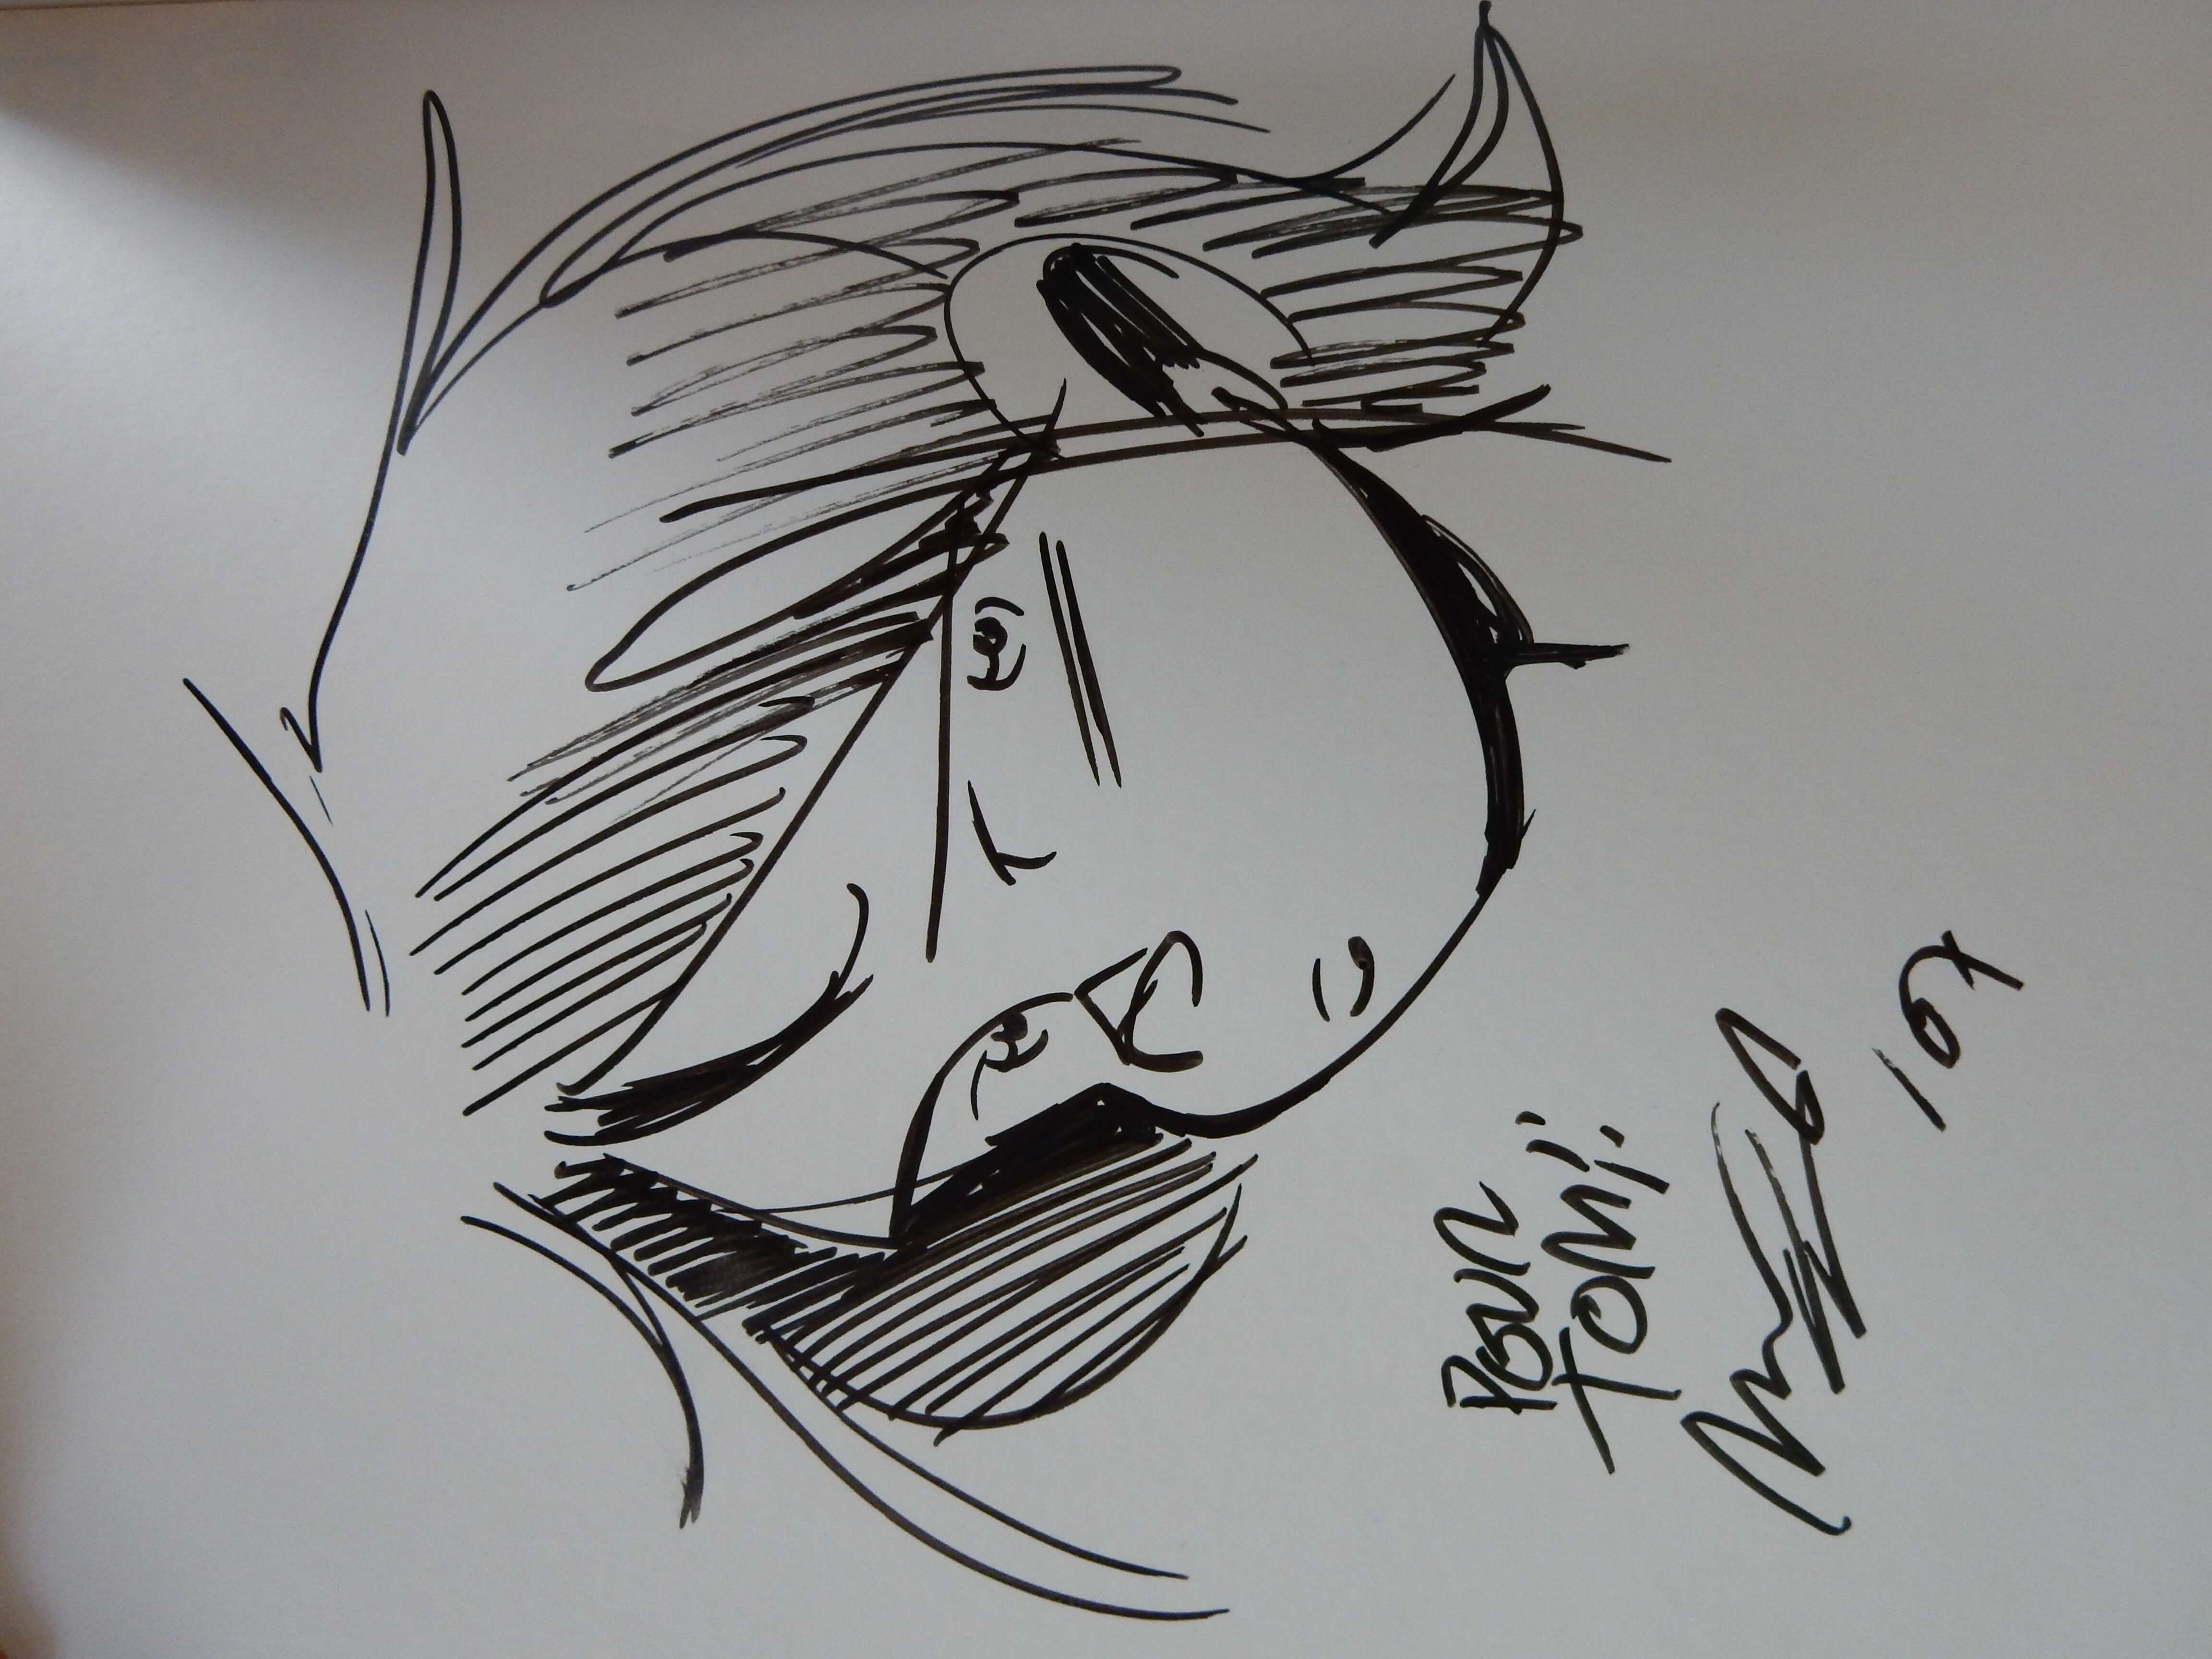 POUR
TOM!!
'07